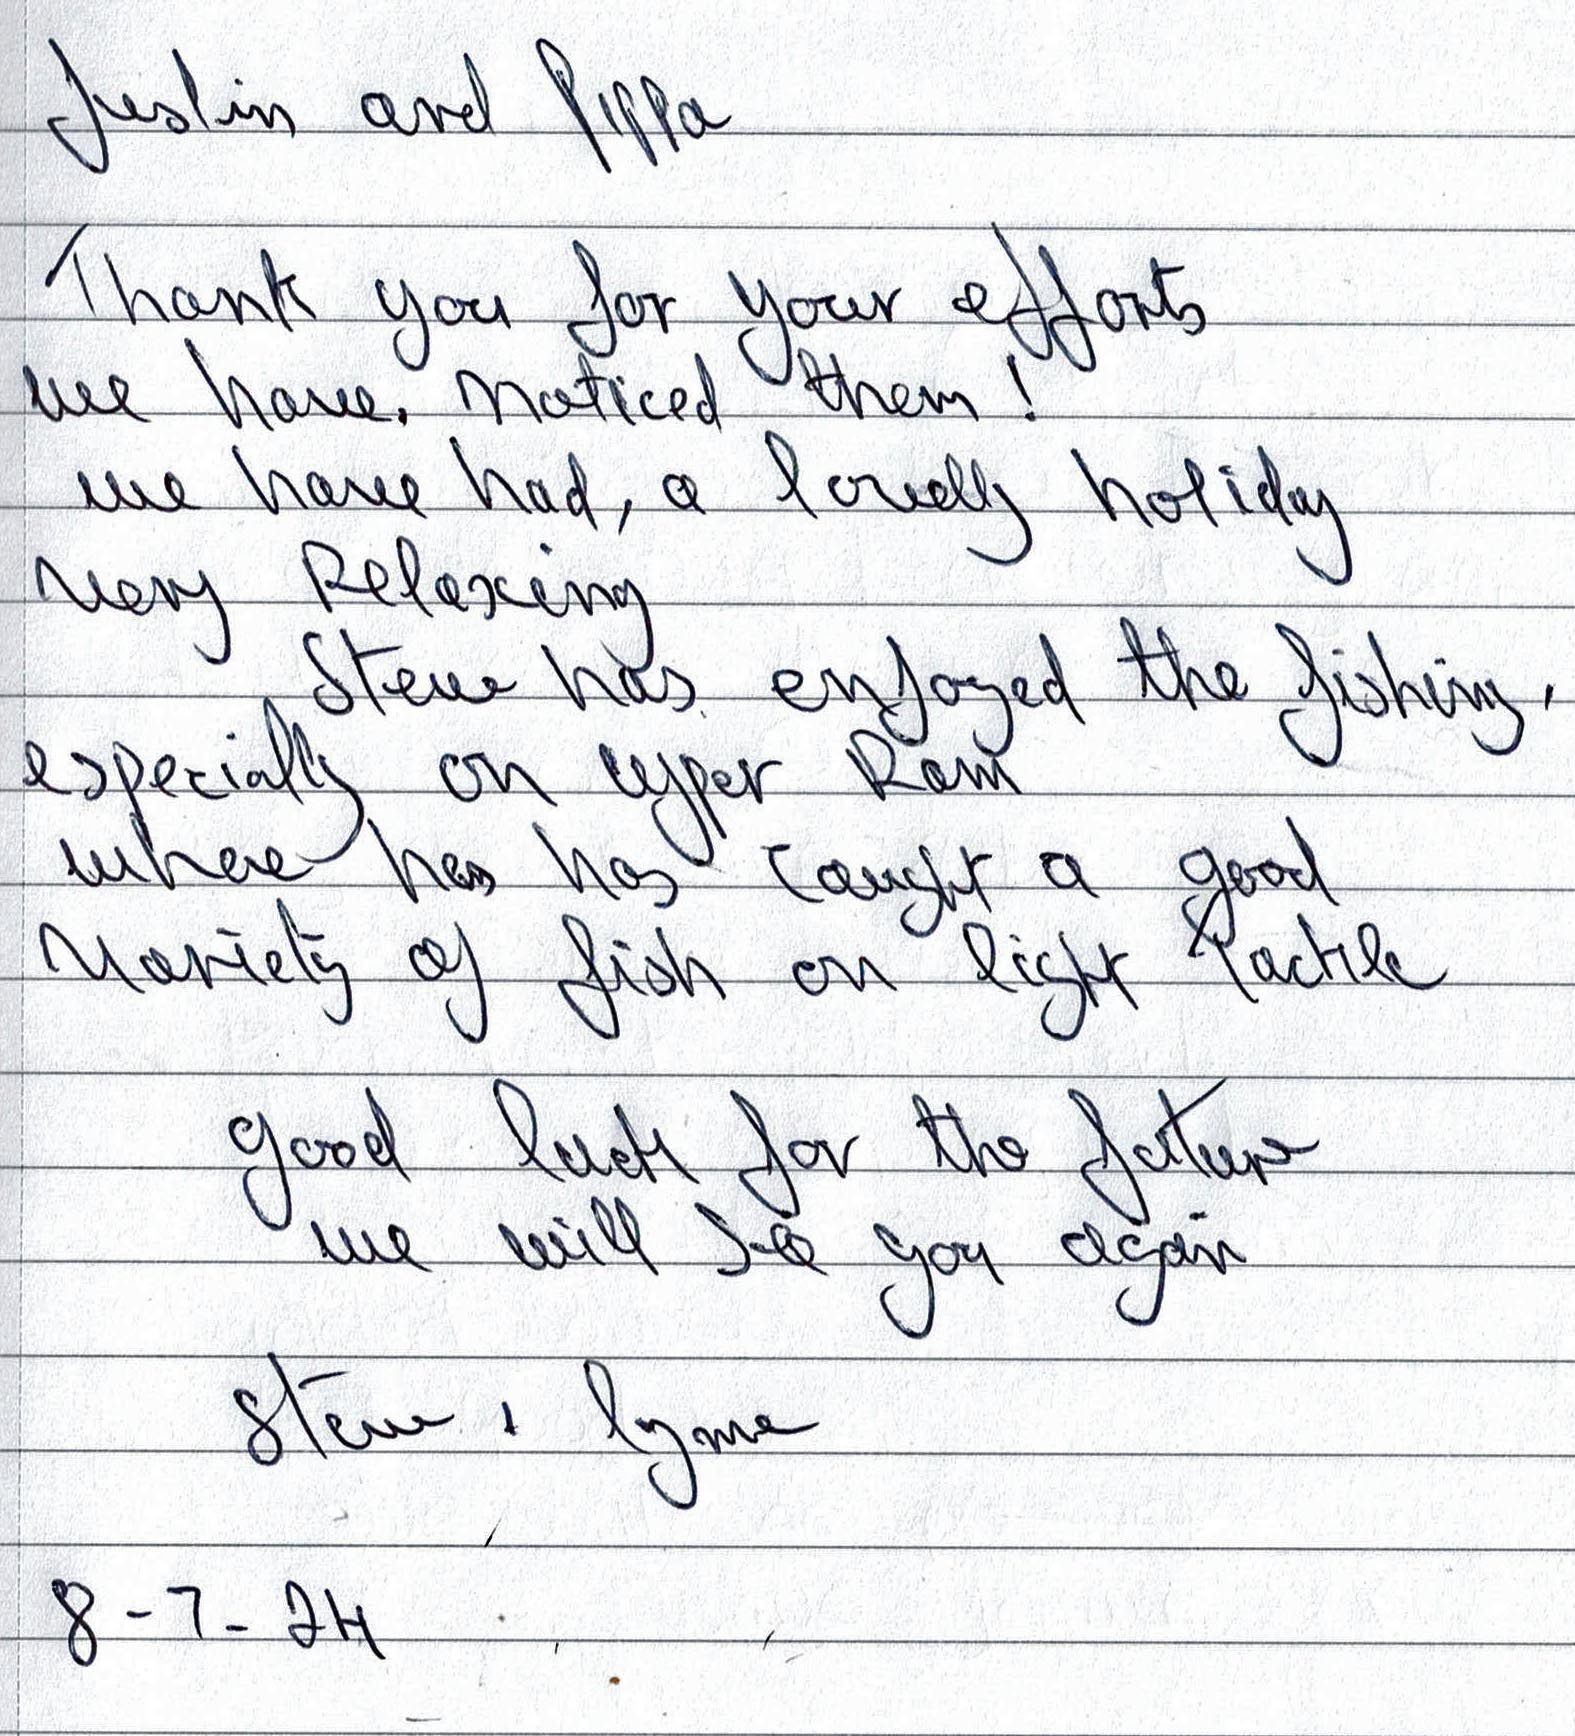 Justin and Pippa
Thank you for your efforts
we have. noticed them!
we have had, a lovely holiday
very Relaxing
Steve has enjoyed the fishing,
especially on upper Ram
where has has caught a good
variety of fish on light tackle
good luck for the future
we will see you again
Steve + lynne
8-7-24